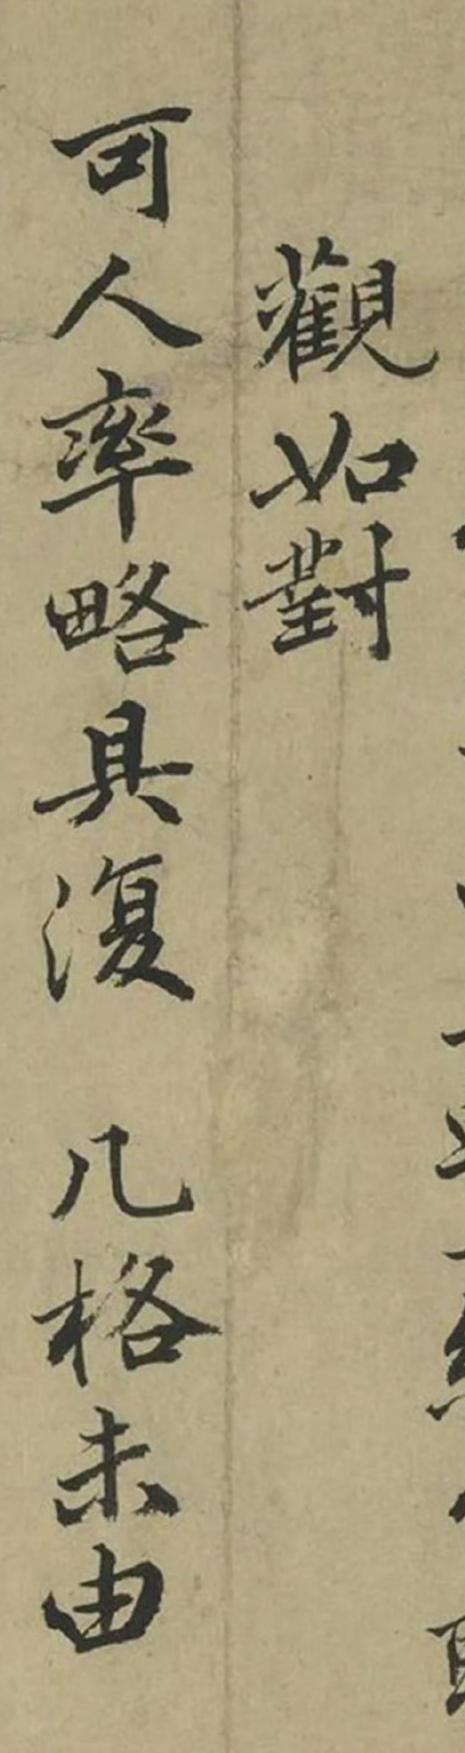 觀如對
可人率略具復 几格未由